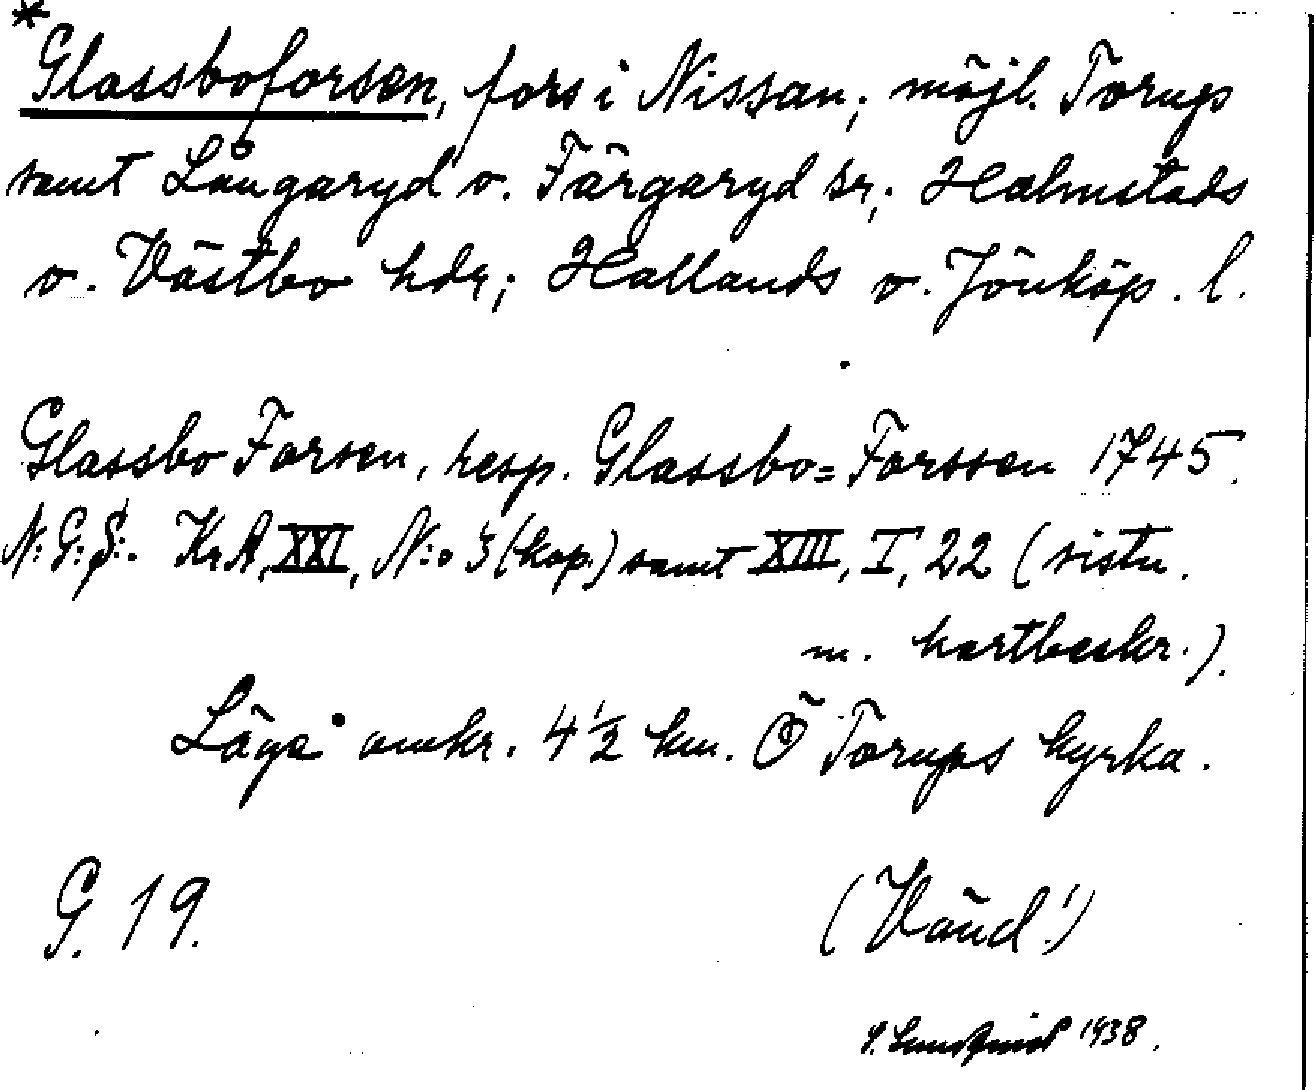 *Glassboforsen, fors i Nissan; möjl. Torups
samt Långaryd o. Färgaryd sr; Halmstads
o. Västbo hdr; Hallands o. Jönköp. l.
Glassbo Forsen, resp. Glassbo=Forssen 1745.
N:G:S:. KrA, XXI, N:o 3 (kop.) samt XIII, I, 22 (sistn.
m. kartbeskr.).
Läge omkr. 4 1/2 km. Ö Torups kyrka.
G. 19.
(Vänd!)
1938.